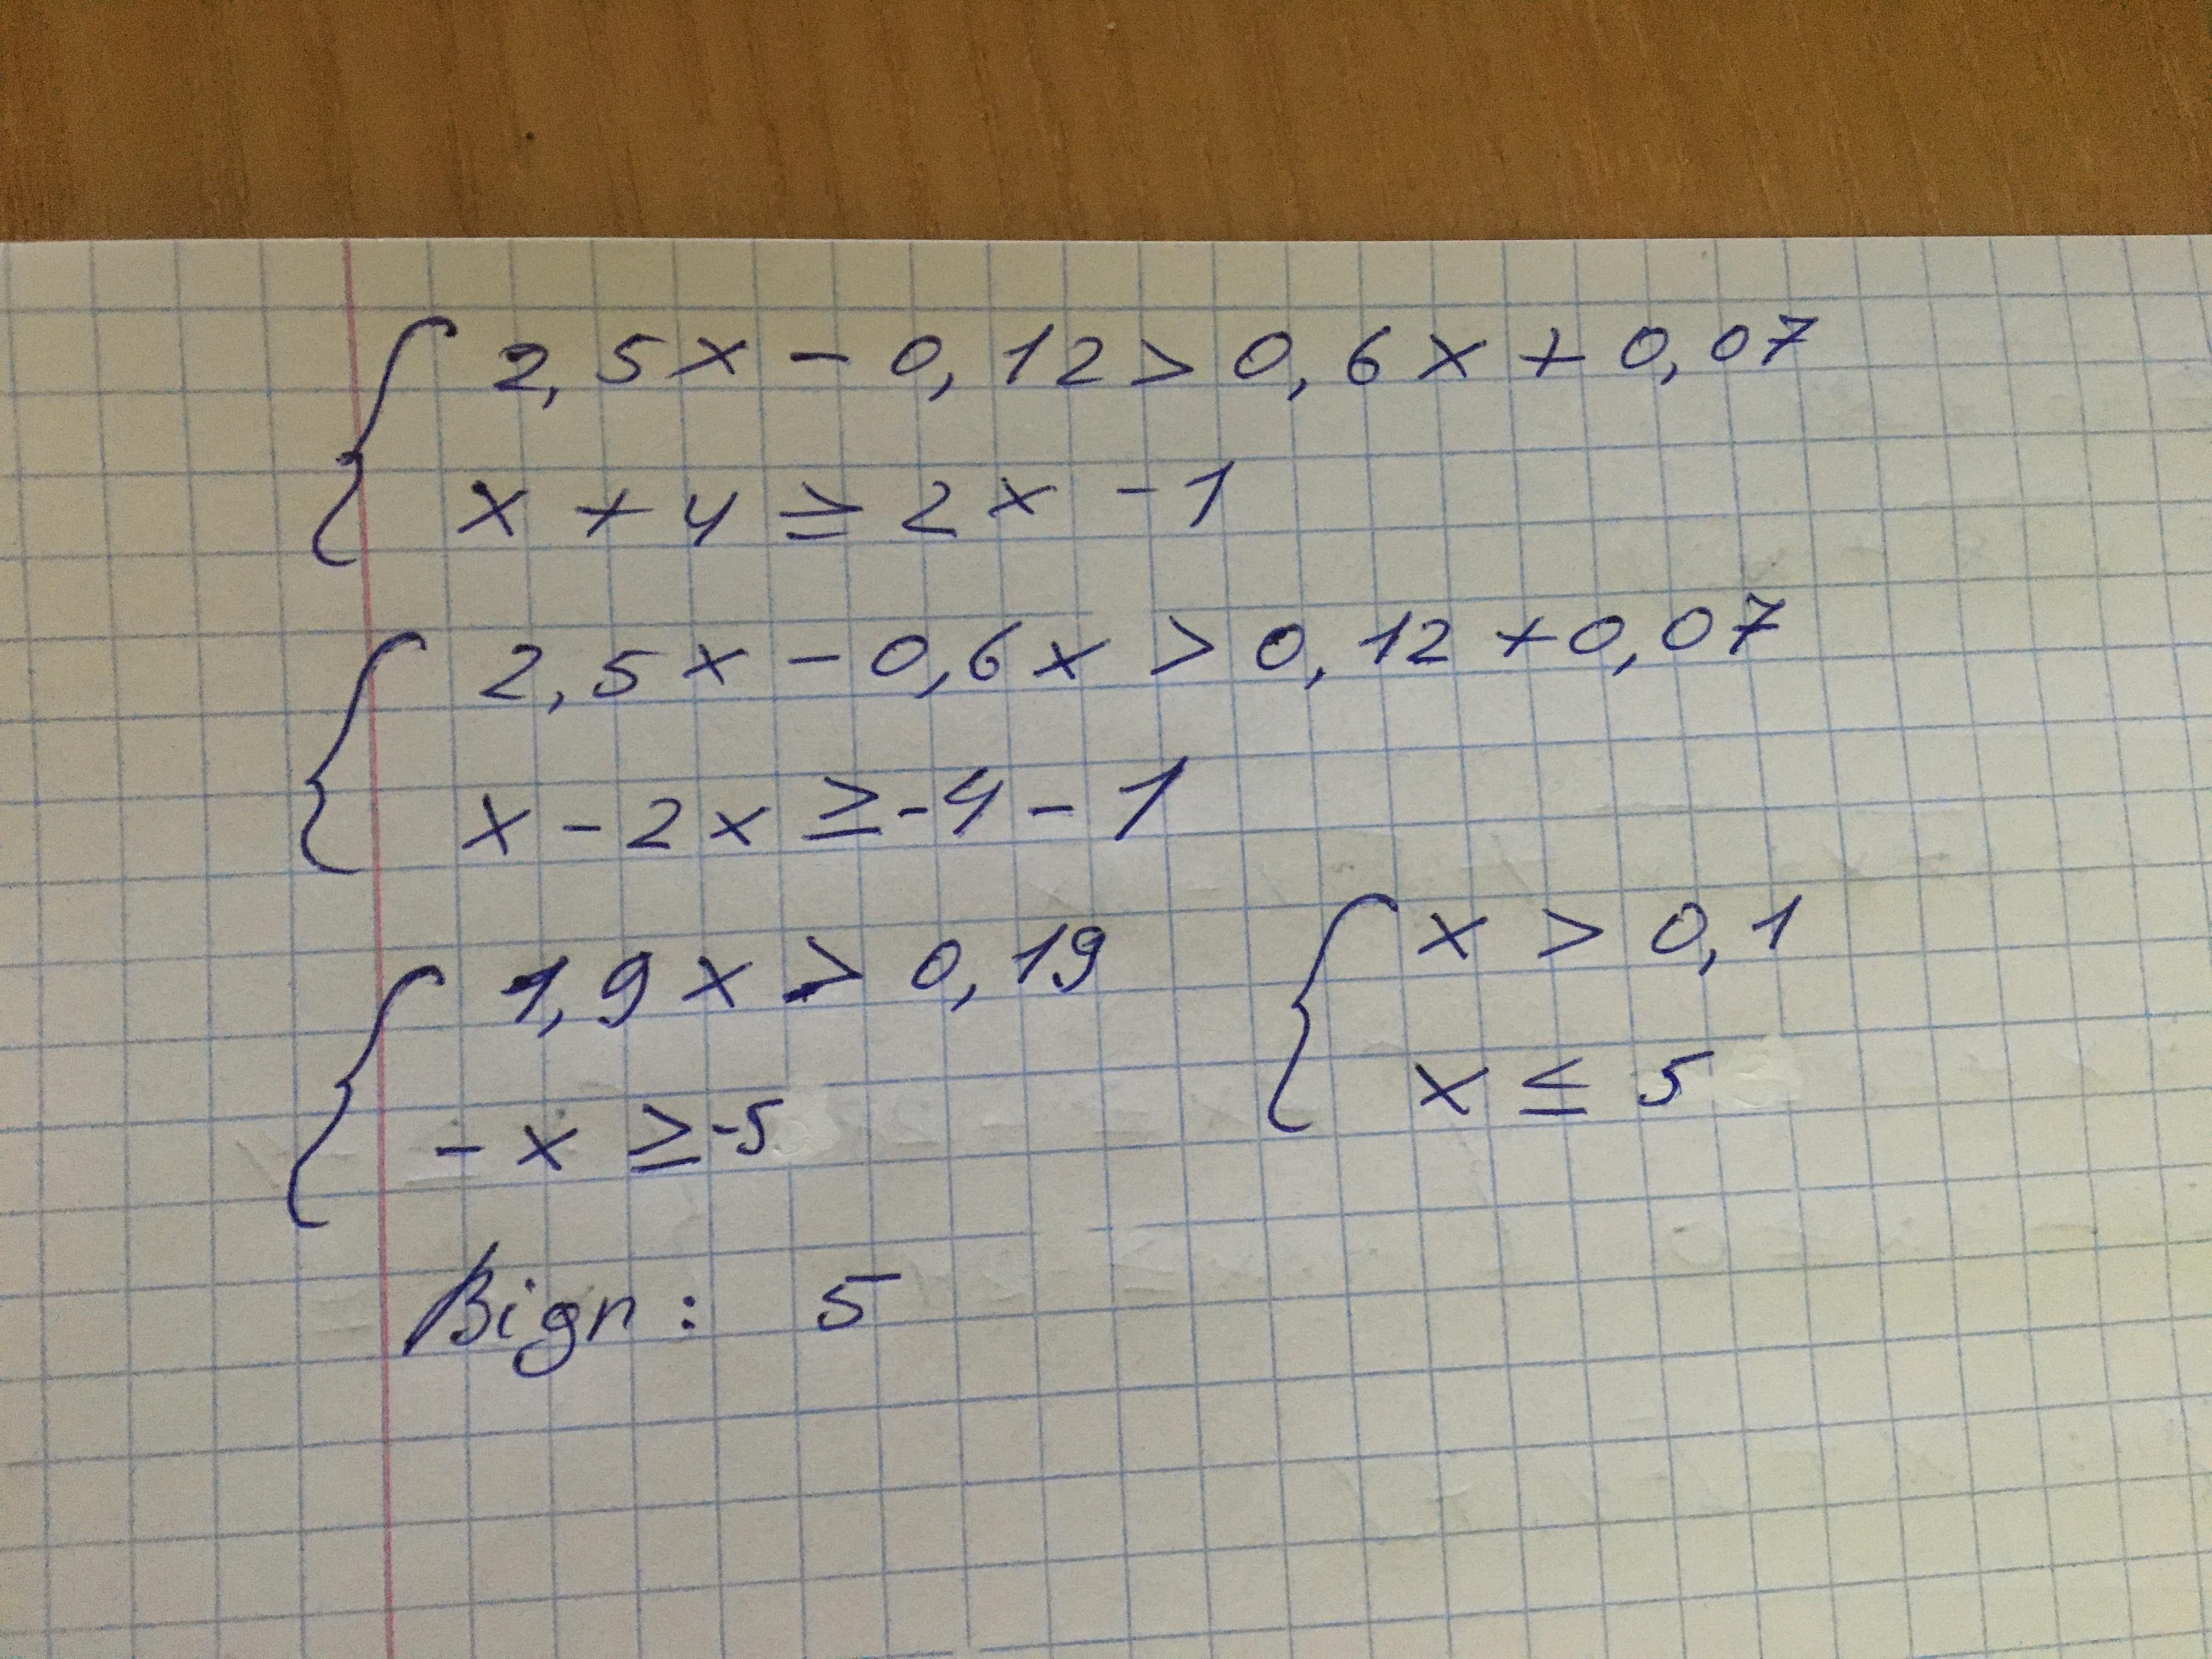 { 2,5x - 0,12 > 0,6x + 0,07
x + 4 ≥ 2x - 1
{ 2,5x - 0,6x > 0,12 + 0,07
x - 2x ≥ -4 - 1
{ 1,9x > 0,19
-x ≥ -5
{ x > 0,1
x ≤ 5
Відп: 5